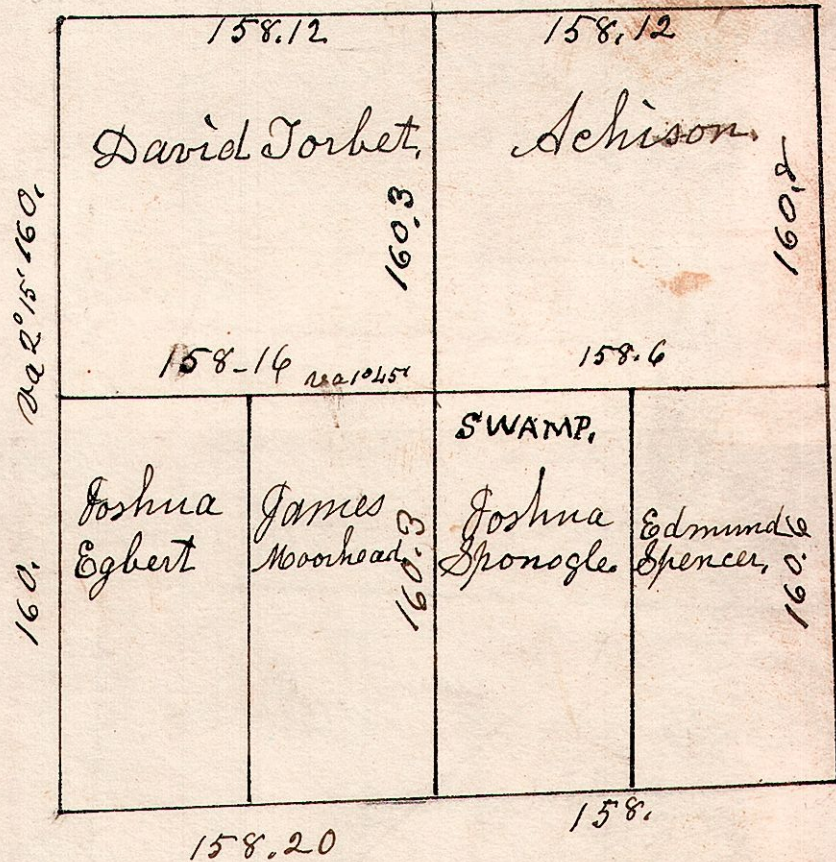 158.12
158.12
David Torbet.
Achison.
va 2° 15' 160.
160.3
160.8
158-16 va 1° 45'
158.6
SWAMP.
Joshua
Egbert
James
Moorhead
Joshua
Sponogle.
Edmund
Spencer.
160.
160.3
158.20
158.